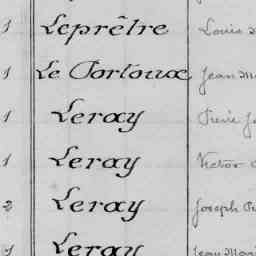 1 Leprêtre Louis
1 Le Portoux Jean M
1 Leray Pierre J
1 Leray Victor
2 Leray Joseph
1 Leray Jean Mari